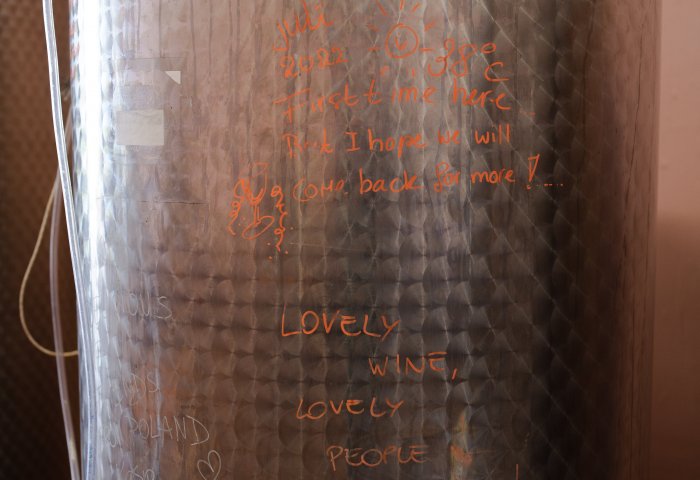 juli
2022 -38°C
First time here
But I hope we will
come back for more !....
LOVELY
WINE,
LOVELY
PEOPLE
POLAND